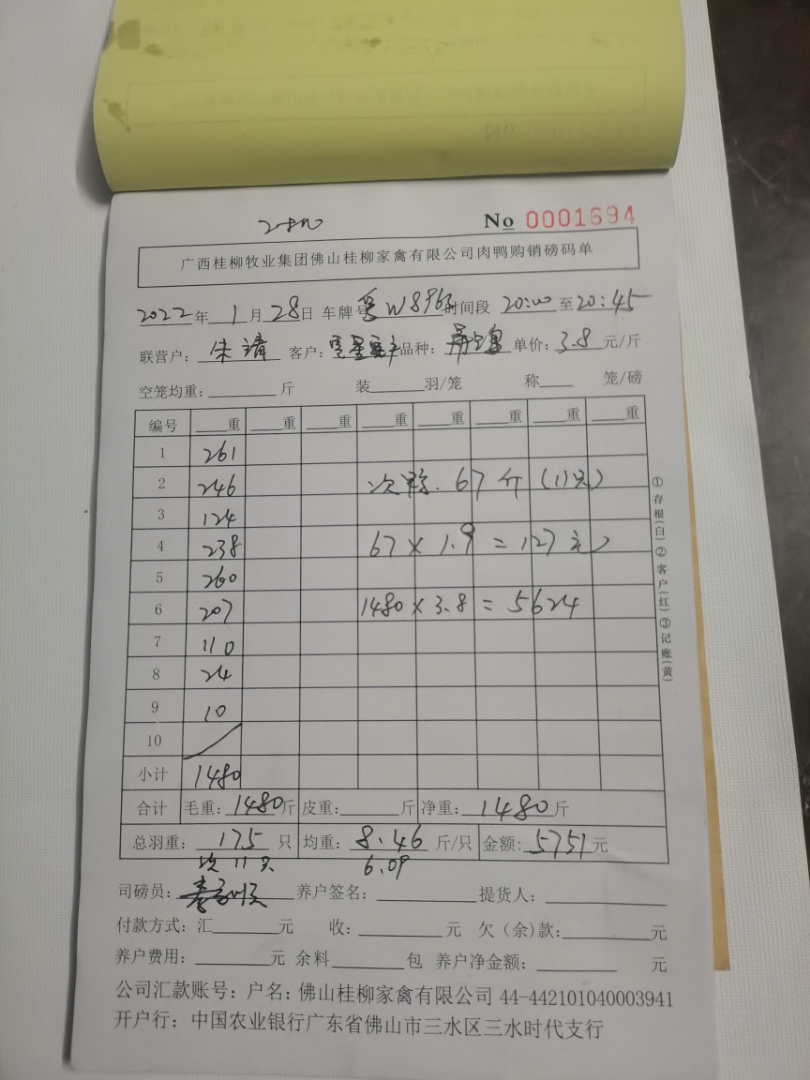 No 0001694
广西桂柳牧业集团佛山桂柳家禽有限公司肉鸭购销磅码单
2022年 1月28日 车牌号 粤W 时间段 20:00 至 20:45
联营户: 朱靖 客户: 品种: 单价: 3.8 元/斤
空笼均重: 斤 装 羽/笼 称 笼/磅
编号 重 重 重 重 重 重 重 重
1 261
2 246 67斤 (11只)
3 124
4 238 67×1.9=127元
5 260
6 207 1480×3.8=5624
7 110
8 24
9 10
10
小计 1480
合计 毛重: 1480斤 皮重: 斤 净重: 1480斤
总羽重: 175 只 均重: 8.46 斤/只 金额: 5751元
次11只 6.09
司磅员: 养户签名: 提货人:
付款方式: 汇 元 收: 元 欠(余)款: 元
养户费用: 元 余料 包 养户净金额: 元
公司汇款账号: 户名: 佛山桂柳家禽有限公司 44-442101040003941
开户行: 中国农业银行广东省佛山市三水区三水时代支行
①存根(白)②客户(红)③记账(黄)